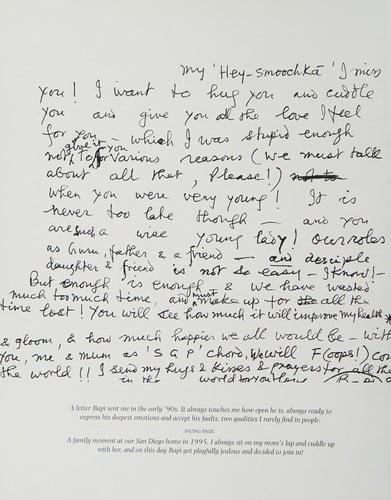 my 'Hey-smoochkā' I miss
you! I want to hug you and cuddle
you and give you all the love I feel
for you – which I was stupid enough
give it you
not to for various reasons (we must talk
about all that, Please!)
when you were very young! It is
never too late though — and you
are such a wise young lady! Our roles
as Guru, father & a friend — and disciple
daughter & friend is not so easy – I know! –
But enough is enough & we have wasted
much too much time, and must make up for all the
time lost! You will see how much it will improve my health
& gloom, & how much happier we all would be – with
you, me & mum as 'S G P' chord, We will F(oops!) con
the world!! I send my hugs & kisses & prayers for all the
in the world for
A letter Bapi sent me in the early '90s. It always touches me how open he is, always ready to
express his deepest emotions and accept his faults, two qualities I rarely find in people.
FACING PAGE:
A family moment at our San Diego home in 1995. I always sit on my mom's lap and cuddle up
with her, and on this day Bapi got playfully jealous and decided to join in!